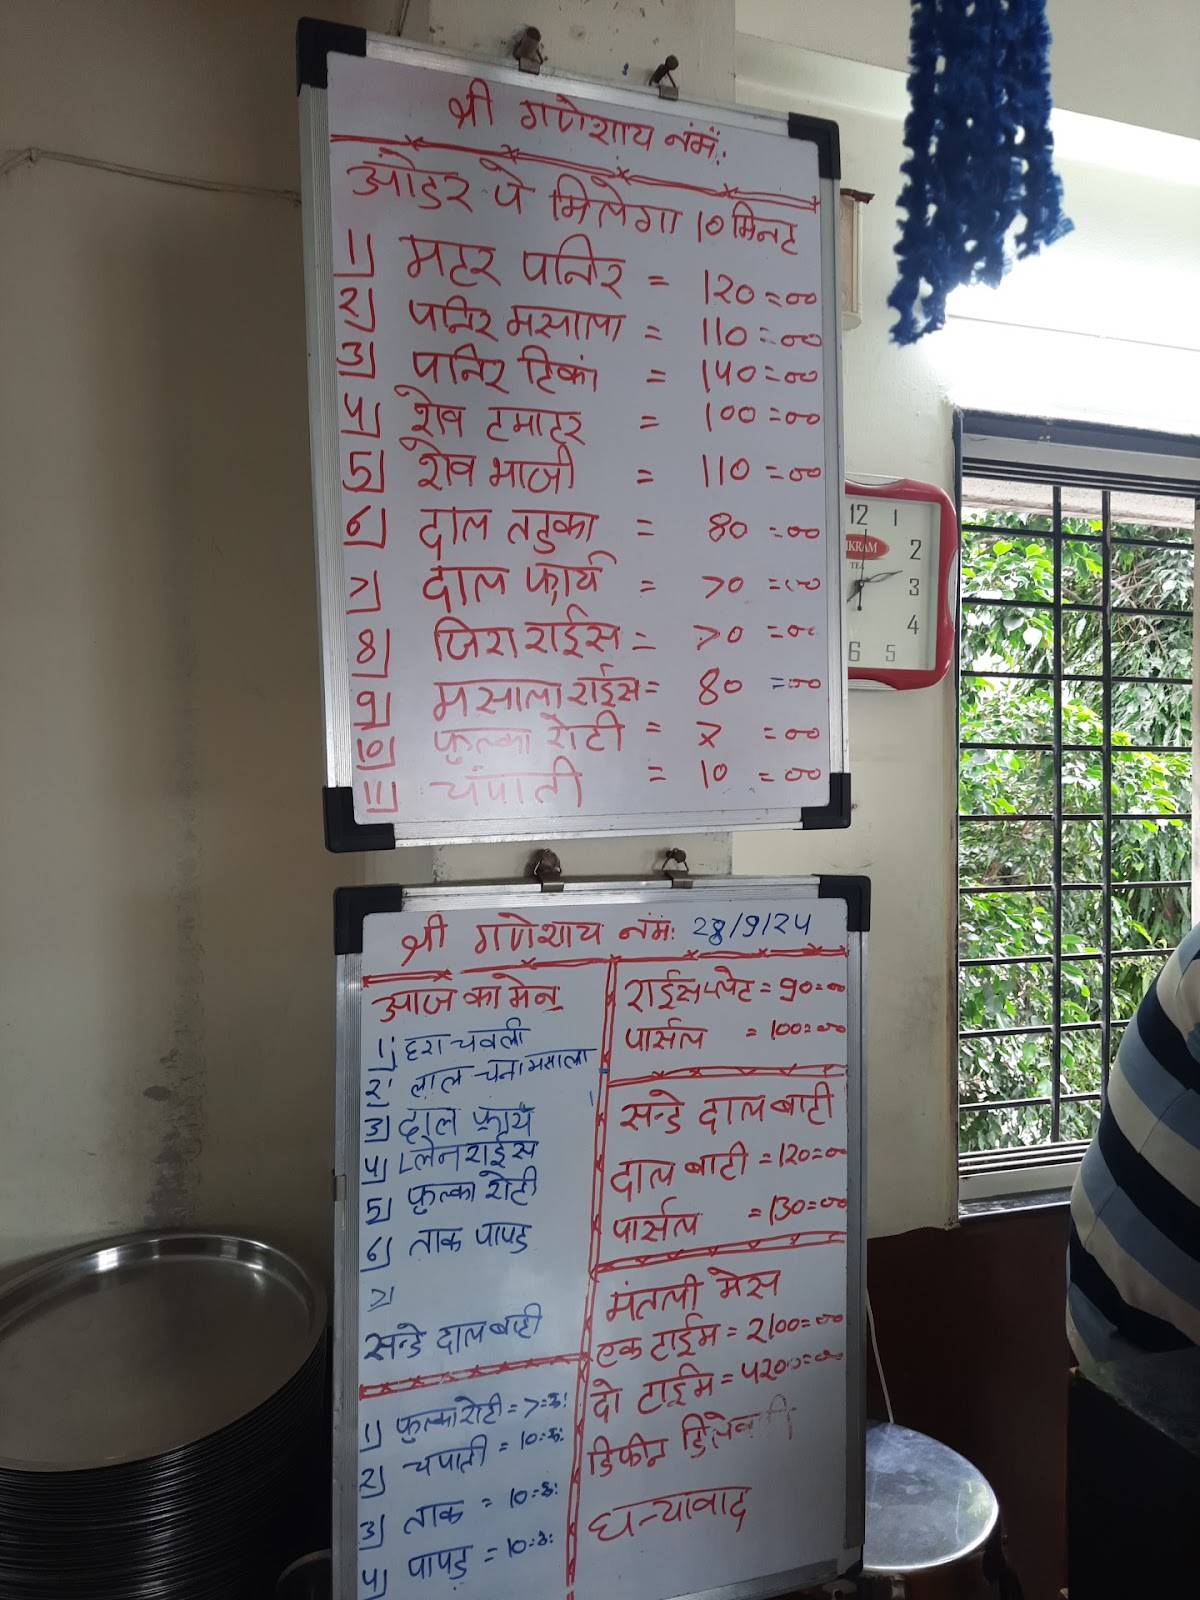 श्री गणेशाय नंमं:
ऑडर पे मिलेगा 10 मिनट
1] मटर पनिर = 120=00
2] पनिर मसाला = 110=00
3] पनिर टिकां = 140=00
4] शेव टमाटर = 100=00
5] शेव भाजी = 110=00
6] दाल तडका = 80=00
7] दाल फ्रार्य = 70=00
8] जिरा राईस = 70=00
9] मसाला राईस = 80=00
10] फुल्का रोटी = 7=00
11] चंपाती = 10=00
12 1
2
3
4
5
6
IKRAM
TEA
श्री गणेशाय नंमं: 28/9/24
आज का मेनू
1] हरा चवली
2] लाल चना मसाला
3] दाल फ्रार्य
4] प्लेन राईस
5] फुल्का रोटी
6] ताक पापड
7]
सन्डे दाल बाटी
1] फुल्का रोटी = 7=रु:
2] चपाती = 10=रु:
3] ताक = 10=रु:
4] पापड = 10=रु:
राईस प्लेट = 90=00
पार्सल = 100=00
सन्डे दाल बाटी
दाल बाटी = 120=00
पार्सल = 130=00
मंतली मेस
एक टाईम = 2100=00
दो टाईम = 4200=00
डिफीन
धन्यावाद